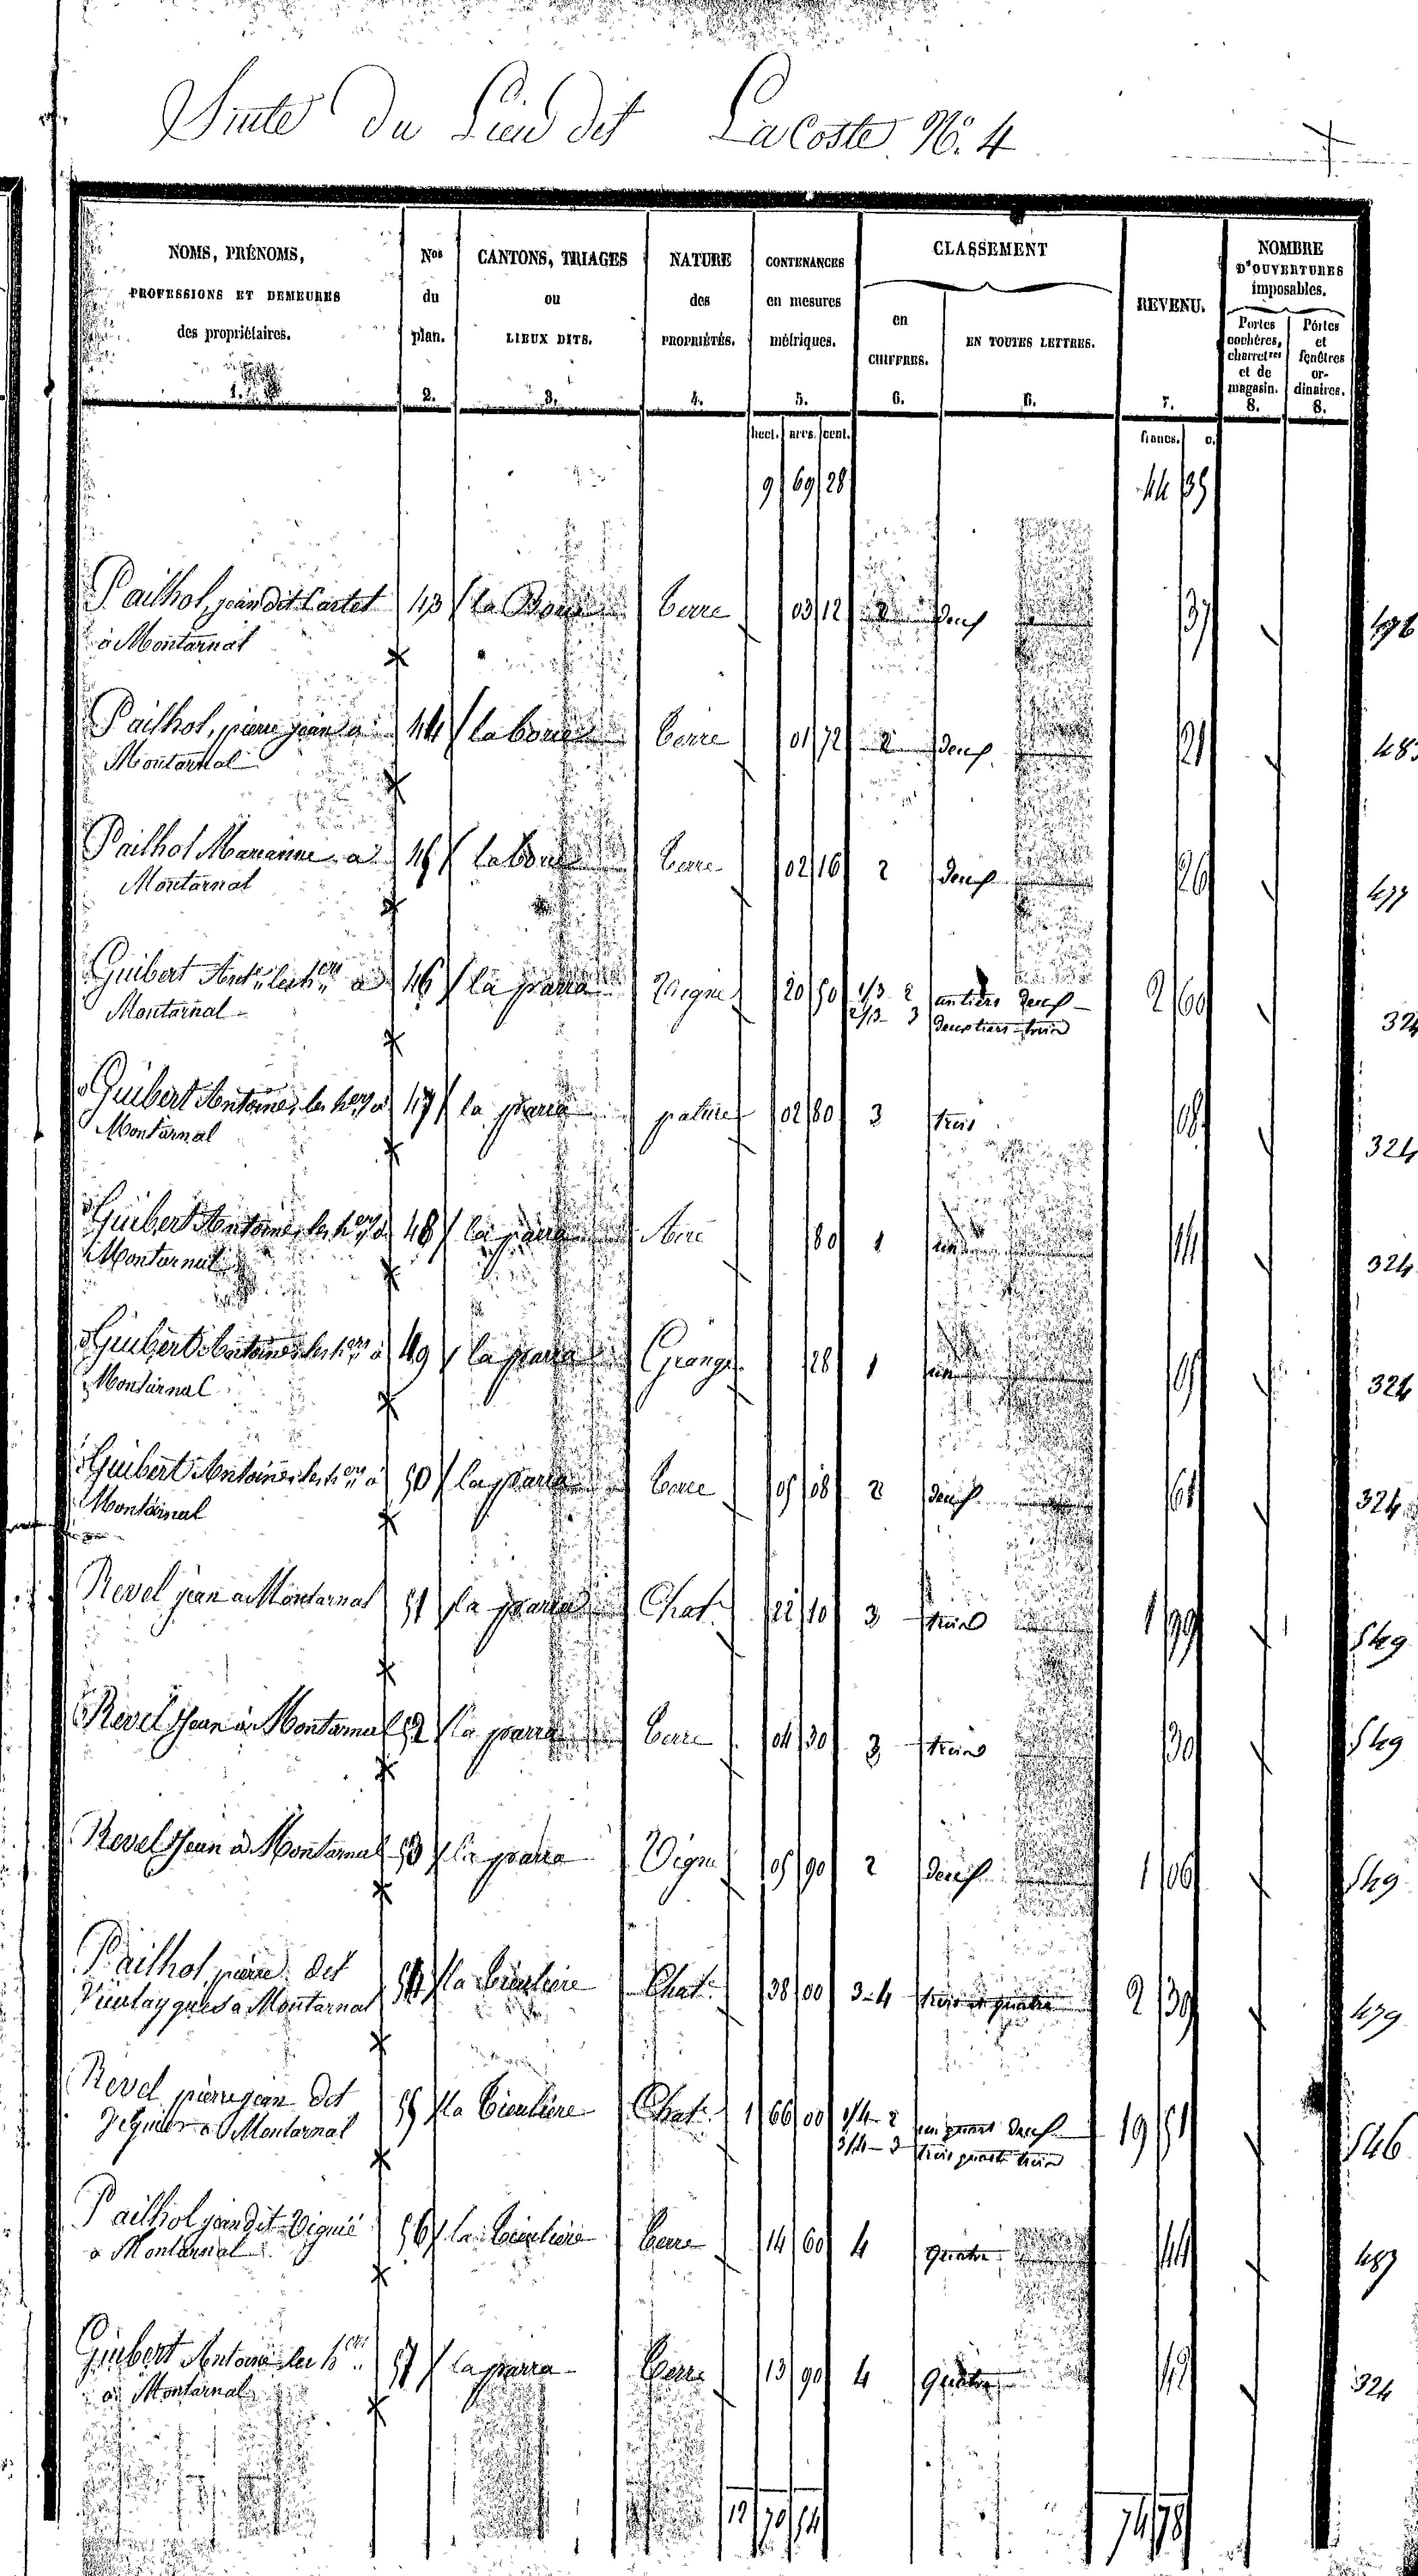 Suite du Lieu dit La Coste N.º 4
NOMS, PRÉNOMS, PROFESSIONS ET DEMEURES des propriétaires. 1.
Nos du plan. 2.
CANTONS, TRIAGES ou LIEUX DITS. 3.
NATURE des PROPRIÉTÉS. 4.
CONTENANCES en mesures métriques. 5.
CLASSEMENT
en CHIFFRES. 6.
EN TOUTES LETTRES. 6.
REVENU. 7.
NOMBRE D'OUVERTURES imposables.
Portes cochères, charretres et de magasin. 8.
Portes et fenêtres ordinaires. 8.
hect. ares cent. francs. c.
9 69 28 44 35
Pailhol, jean dit Cartet 43 la Borie terre 03 12 2 deux 37 476
à Montarnal
Pailhol, pierre jean a 44 la borie terre 01 72 2 deux 21
Montarnal
Pailhol Marianne a 45 la borie terre 02 16 2 deux 26 477
Montarnal
Guibert Ant.e les h.ers a 46 la parra Vigne 20 50 1/3 2 un tiers deux 2 60 324
Montarnal 2/3 3 deux tiers trois
Guibert Antoine, les h.ers a 47 la parra pature 02 80 3 trois 08 324
Montarnal
Guibert Antoine, les h.ers a 48 la parra Aire 80 1 un 14 324
Montarnal
Guibert Antoine les h.ers a 49 la parra Grange 28 1 un 05 324
Montarnal
Guibert Antoine les h.ers a 50 la parra terre 05 08 2 deux 61 324
Montarnal
Revel jean a Montarnal 51 la parra Chat. 22 10 3 trois 1 99 549
Revel Jean a Montarnal 52 la parra terre 04 30 3 trois 30 549
Revel Jean a Montarnal 53 la parra Vigne 05 90 2 deux 1 06 549
Pailhol, pierre dit 54 la Chat. 38 00 3-4 trois et quatre 2 39 479
a Montarnal
Revel pierre jean dit 55 la Chat. 1 66 00 1/4-2 un quart deux 19 51 546
a Montarnal 3/4-3 trois quarts trois
Pailhol jean dit Viguié 56 la terre 14 60 4 Quatre 44 483
a Montarnal
Guibert Antoine les h.ers 57 la parra terre 13 90 4 Quatre 42 324
a Montarnal
12 70 54 74 78